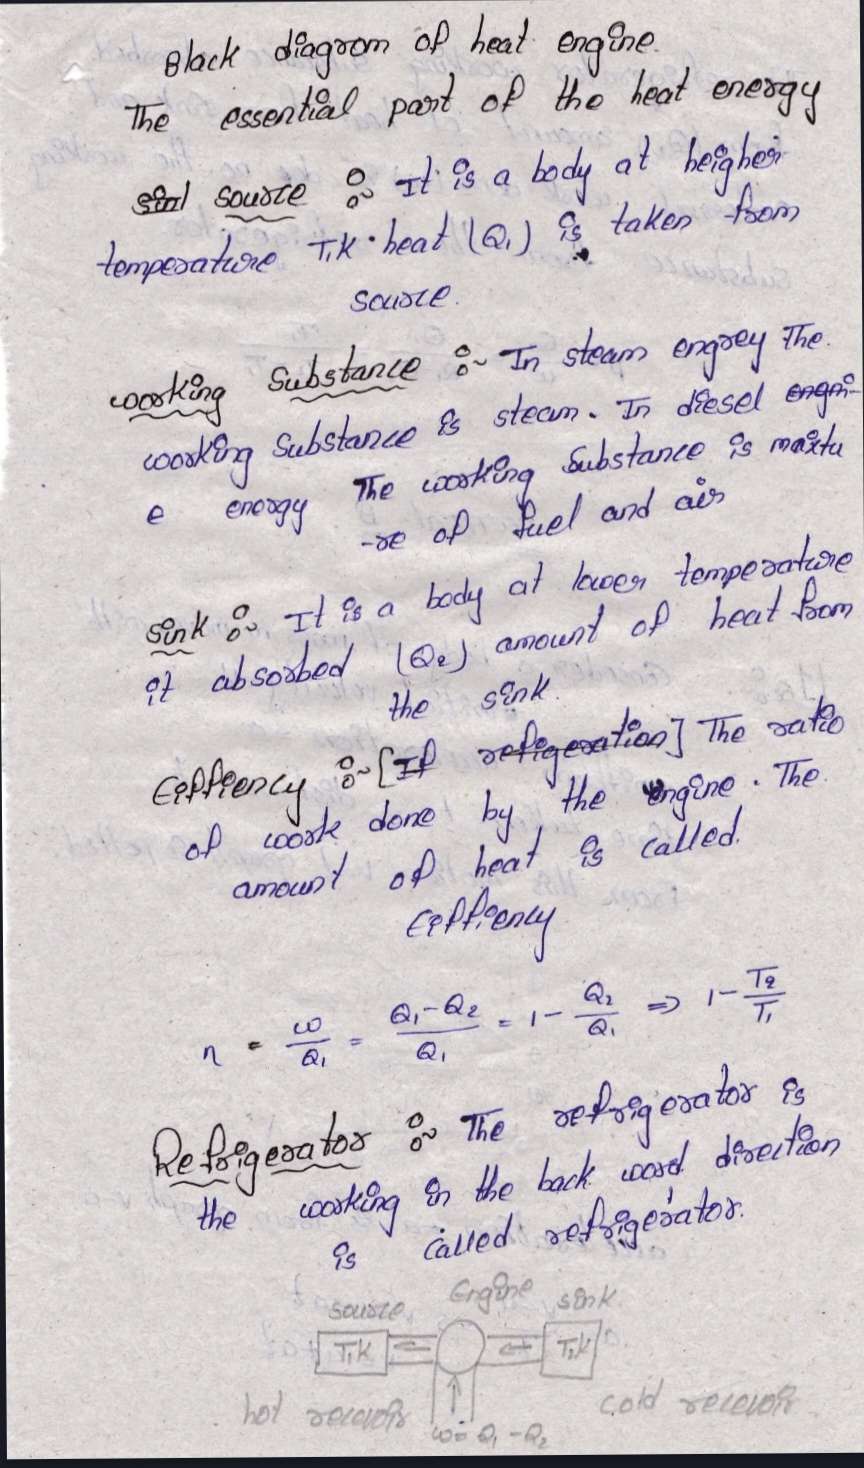 Black diagrom of heat engine.
The essential part of the heat energy
source :~ It is a body at heigher
temperature T1K. heat (Q1) is taken from
source.
working Substance :~ In steam engrey The.
working Substance is steam. In diesel engni-
e energy The working Substance is maixtu
-re of fuel and air
sink :~ It is a body at lower temperature
it absorbed (Q2) amount of heat from
the sink.
Eiffiency :~ [If refigeration] The ratio
of work done by the engine. The
amount of heat is called.
Eiffiency
n = ω/Q1 = Q1-Q2/Q1 = 1- Q2/Q1 => 1- T2/T1
Refrigerator :~ The refrigerator is
the working in the back word direction
is called refrigerator.
source Engine sink.
T1K T2K
hot recevoir cold recevoir
ω= Q1 -Q2